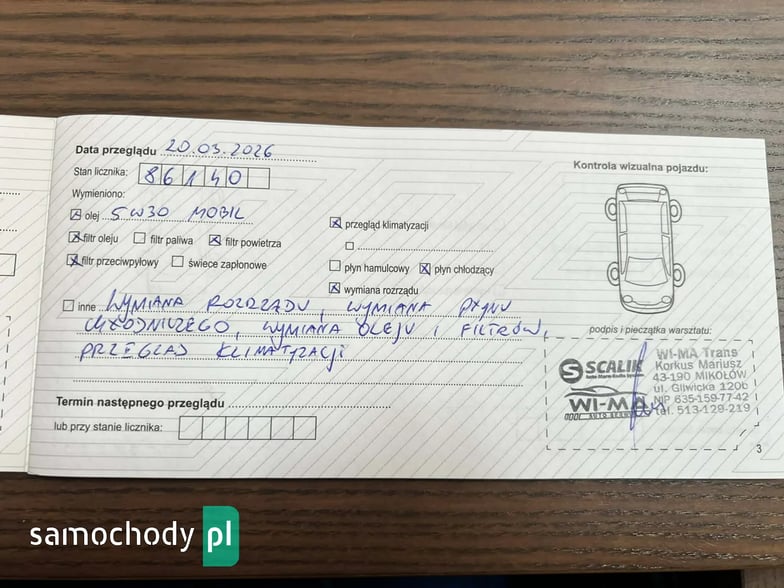 Data przeglądu 20.03.2026
Stan licznika: 86140
Wymieniono:
olej 5W30 MOBIL
filtr oleju filtr paliwa filtr powietrza
filtr przeciwpyłowy świece zapłonowe
przegląd klimatyzacji
płyn hamulcowy płyn chłodzący
wymiana rozrządu
inne WYMIANA ROZRZĄDU, WYMIANA PŁYNU
CHŁODNICZEGO, WYMIANA OLEJU I FILTRÓW,
PRZEGLĄD KLIMATYZACJI
Termin następnego przeglądu
lub przy stanie licznika:
Kontrola wizualna pojazdu:
podpis i pieczątka warsztatu:
SCALIK
WI-MA
AUTO SERWIS
WI-MA Trans
Korkus Mariusz
43-190 MIKOŁÓW
ul. Gliwicka 120b
NIP 635-159-77-42
tel. 513-129-219
3
samochody pl